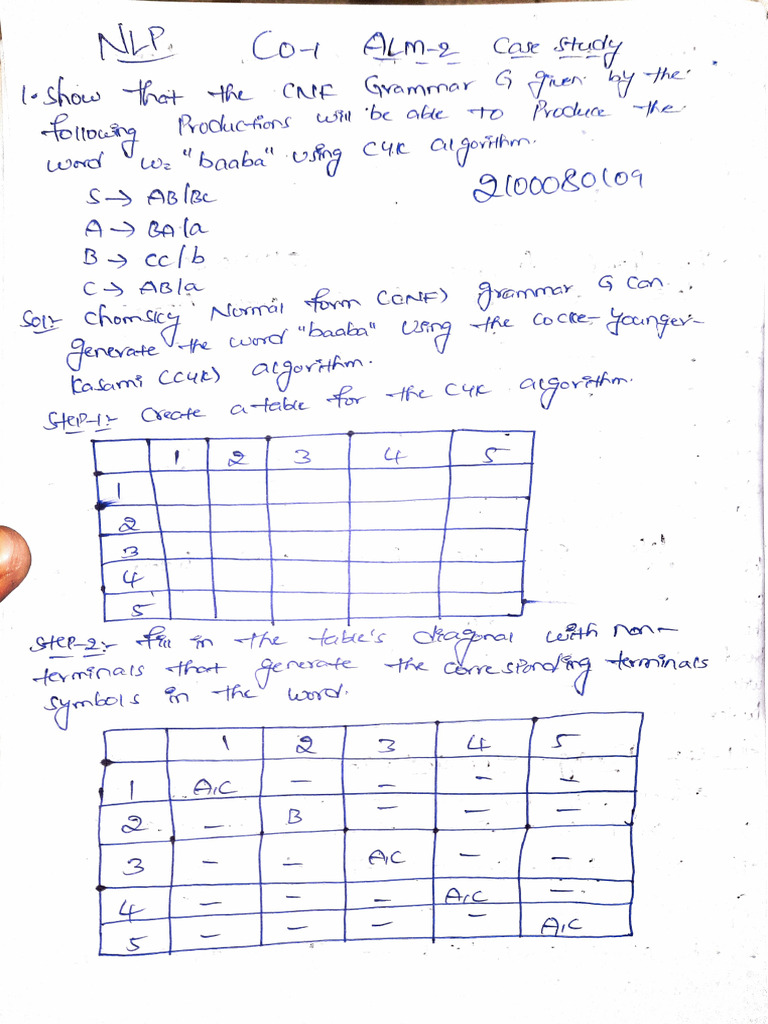 NLP. CO-1 ALM-2 Case study
1. Show that the CNF Grammar G given by the
following Productions will be able to Produce the
word w= "baaba" using CYK algorithm.
2100080109
S → AB/BC
A → BA/a
B → CC/b
C → AB/a
Sol:- Chomsky Normal form (CNF) grammar G can
generate the word "baaba" using the Cocke-Younger-
Kasami (CYK) algorithm.
Step-1:- Create a table for the CYK algorithm.
1 2 3 4 5
1
2
3
4
5
Step-2:- Fill in the table's diagonal with non-
terminals that generate the corresponding terminals
symbols in the word.
1 2 3 4 5
1 A,C - - - -
2 - B - - -
3 - - A,C - -
4 - - - A,C -
5 - - - - A,C